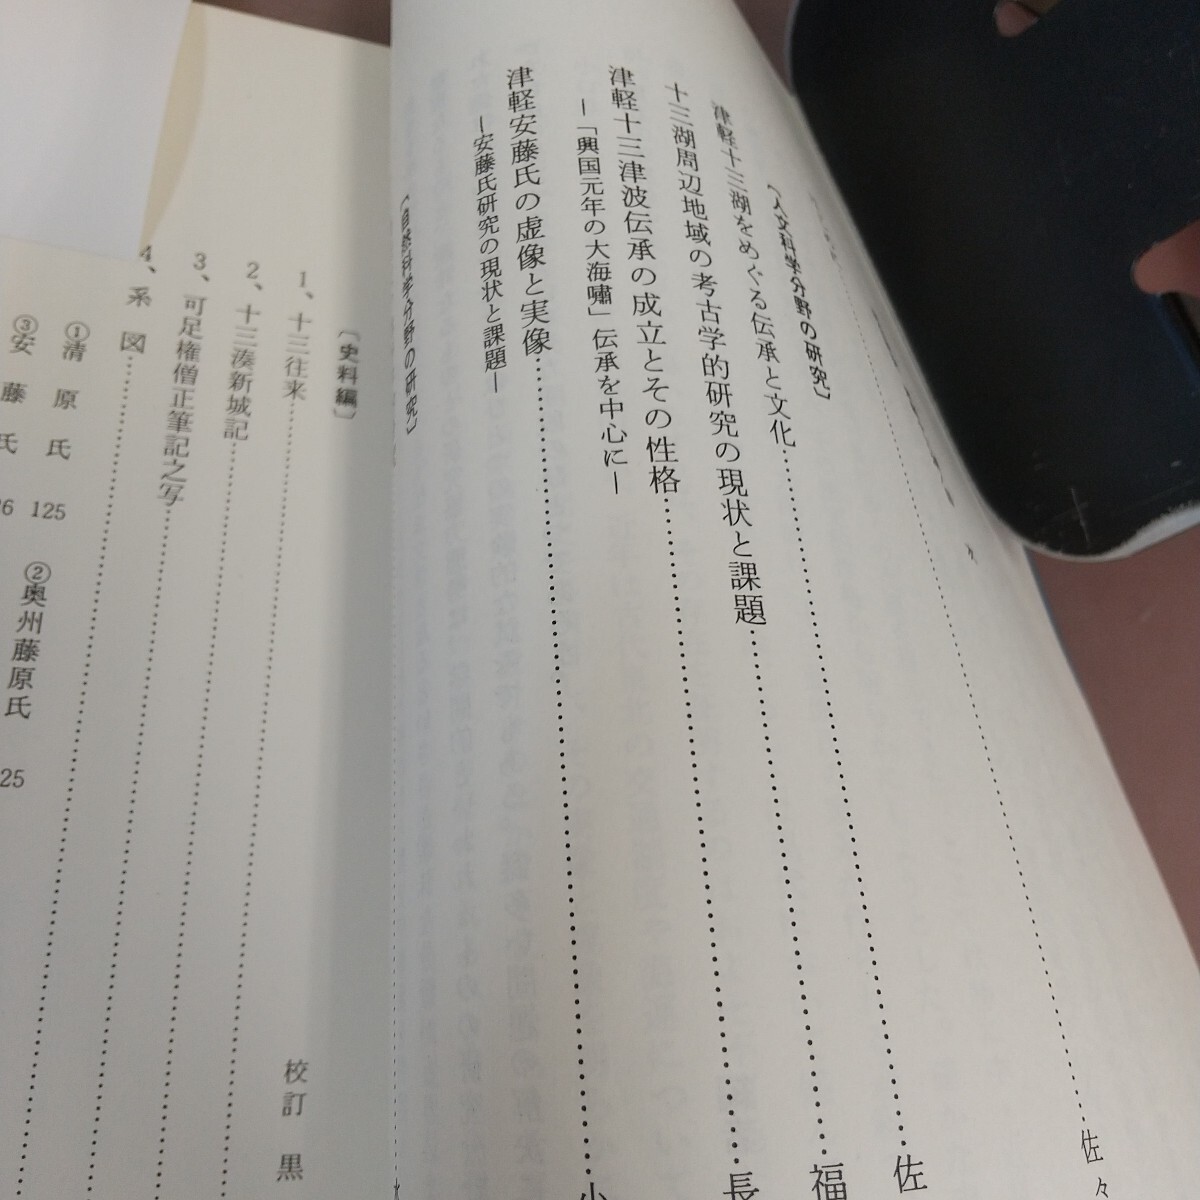 佐々
〔人文科学分野の研究〕
津軽十三湖をめぐる伝承と文化 佐
十三湖周辺地域の考古学的研究の現状と課題 福
津軽十三津波伝承の成立とその性格 長
―「興国元年の大海嘯」伝承を中心に―
津軽安藤氏の虚像と実像 小
―安藤氏研究の現状と課題―
〔自然科学分野の研究〕
〔史料編〕
1、十三往来 校訂 黒
2、十三湊新城記
3、可足権僧正筆記之写
4、系図
①清原氏 125 ②奥州藤原氏 25
③安藤氏 26